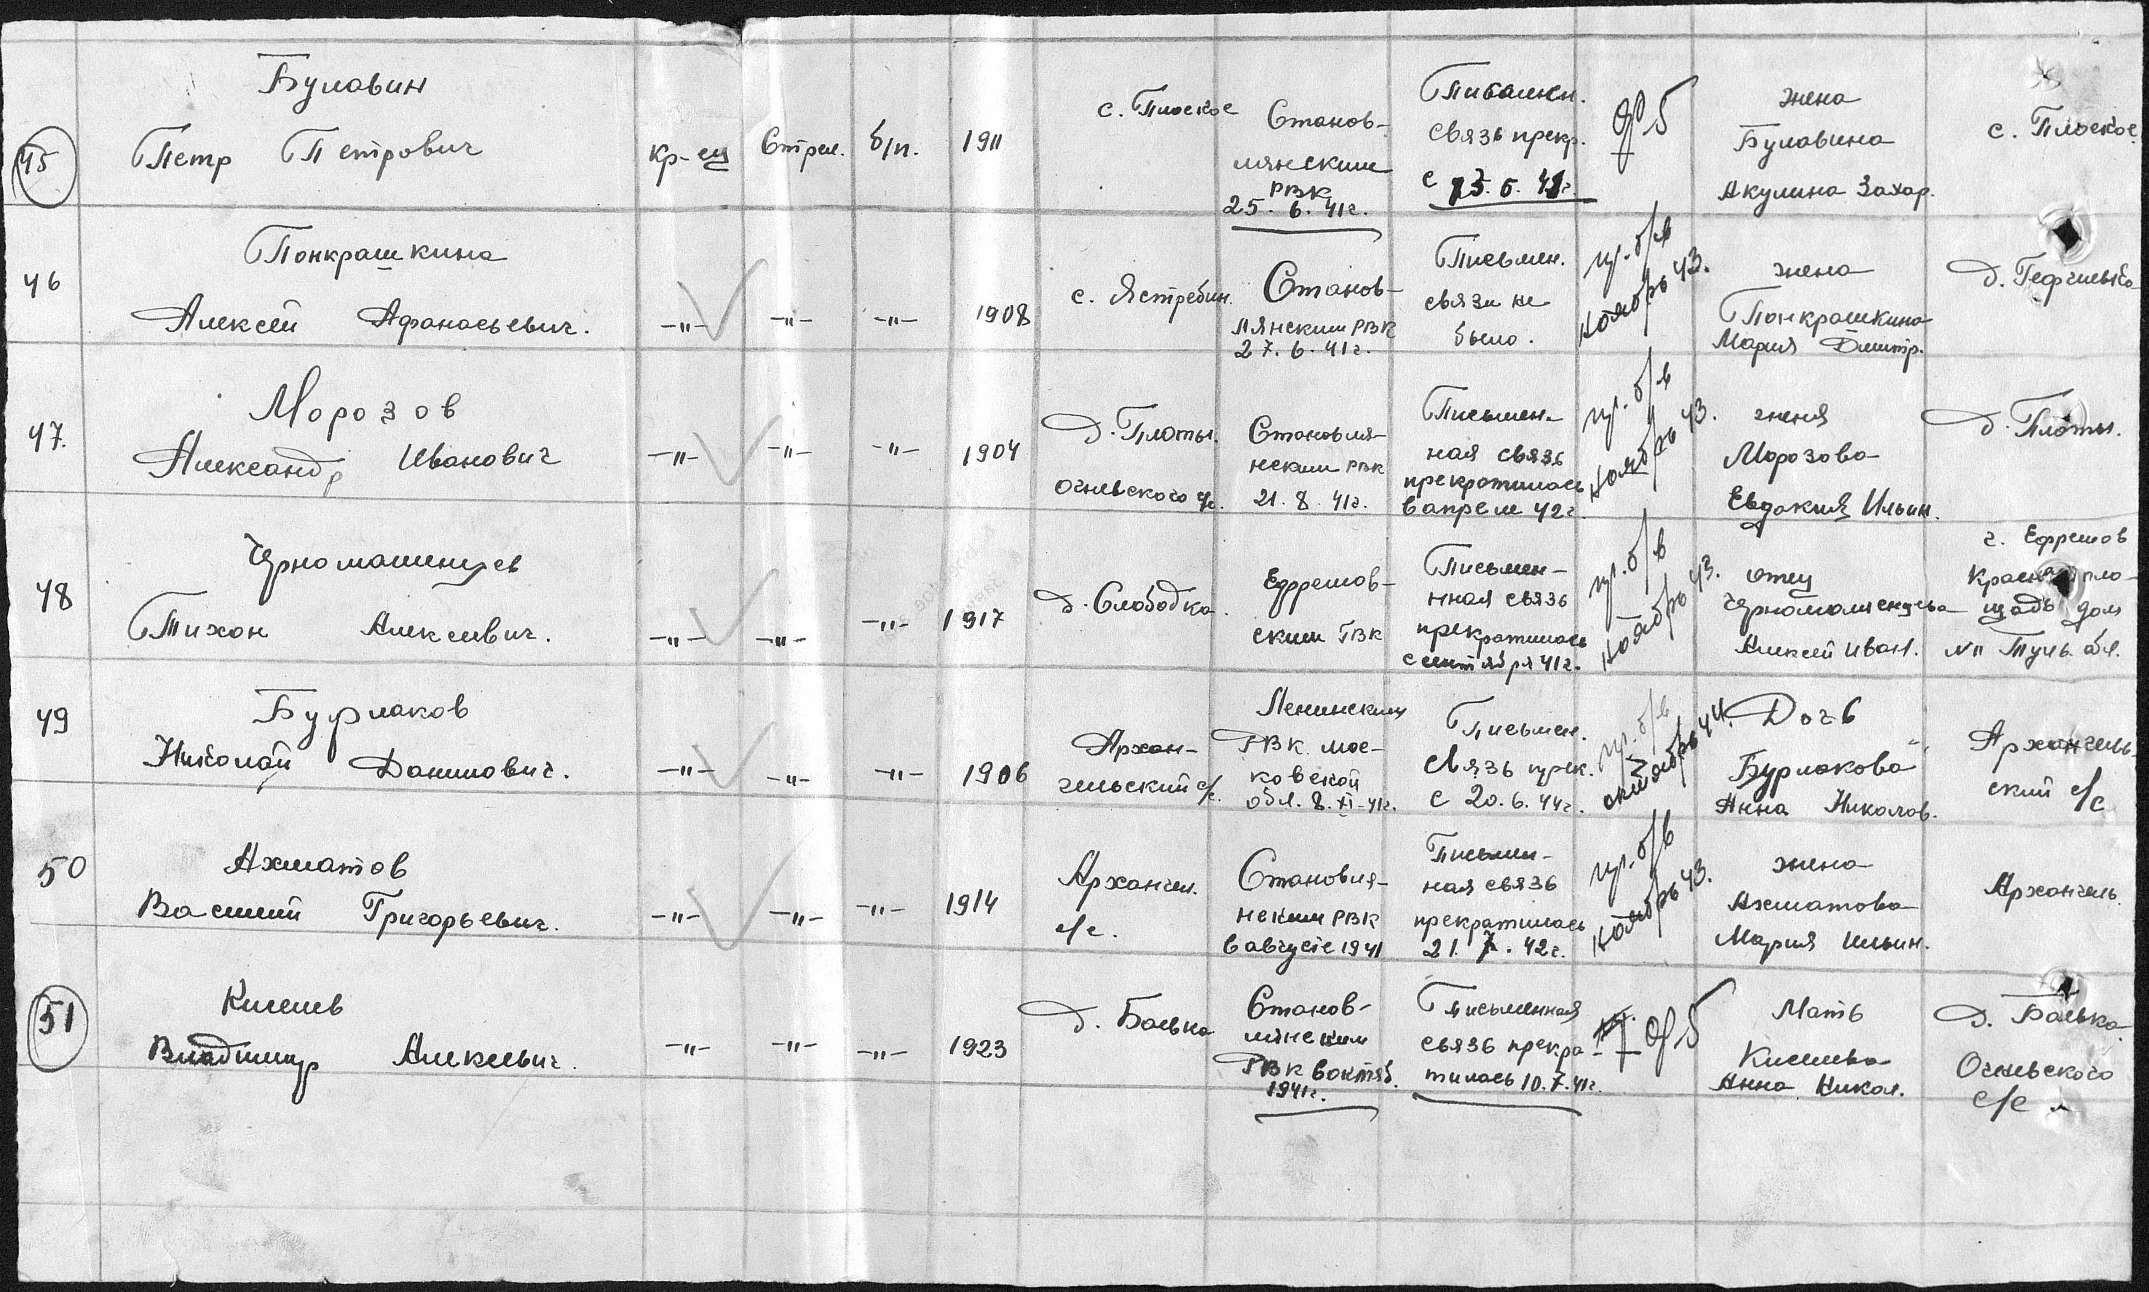 45
Булавин
Петр Петрович
кр-ец
Стрел.
б/п.
1911
с. Плоское
Станов-
лянским
РВК
25. 6. 41г.
Письмен.
связь прекр.
с
жена
Булавина
Акулина Захар.
с. Плоское
46
Понкрашкина
Алексей Афанасьевич.
-"-
-"-
-"-
1908
с. Ястребин.
Станов-
лянским РВК
27. 6. 41г.
Письмен.
связи не
было.
пр. б/в
ноябрь 43.
жена
Понкрашкина
Мария Дмитр.
47.
Морозов
Александр Иванович
-"-
-"-
-"-
1904
д. Плоты.
огневского с/с.
Становля-
нским РВК
21. 8. 41г.
Письмен-
ная связь
прекратилась
в апреле 42г.
пр. б/в
ноябрь 43.
жена
Морозова
Евдокия Ильин.
д. Плоты.
48
Черномашенцев
Тихон Алексеевич.
-"-
-"-
-"-
1917
д. Слободка.
Ефремов-
ским ГВК
Письмен-
нная связь
прекратилась
с сентября 41г.
пр. б/в
ноябрь 43.
отец
Черномашенцева
Алексей Иван.
г. Ефремов
Красная пло-
щадь дом
№11 Туль. обл.
49
Бурлаков
Николай Данилович.
-"-
-"-
-"-
1906
Архан-
гельский с/с.
Ленинским
РВК мос-
ковской
обл. 8. XI-41г.
Письмен.
связь прек.
с 20. 6. 44г.
пр. б/в
октябрь 44.
Дочь
Бурлакова
Анна Николав.
Архангель-
ский с/с
50
Ахматов
Василий Григорьевич.
-"-
-"-
-"-
1914
Архангел.
с/с.
Становля-
нским РВК
в августе 1941
Письмен-
ная связь
прекратилась
21. 7. 42г.
пр. б/в
ноябрь 43.
жена
Ахматова
Мария Ильин.
Архангель.
51
Киселев
Владимир Алексеевич.
-"-
-"-
-"-
1923
д. Баевка
Станов-
лянским
РВК в октяб.
1941г.
Письменная
связь прекра-
тилась 10. 7. 41г.
Мать
Киселева
Анна Никол.
д. Баевка
Огневского
с/с